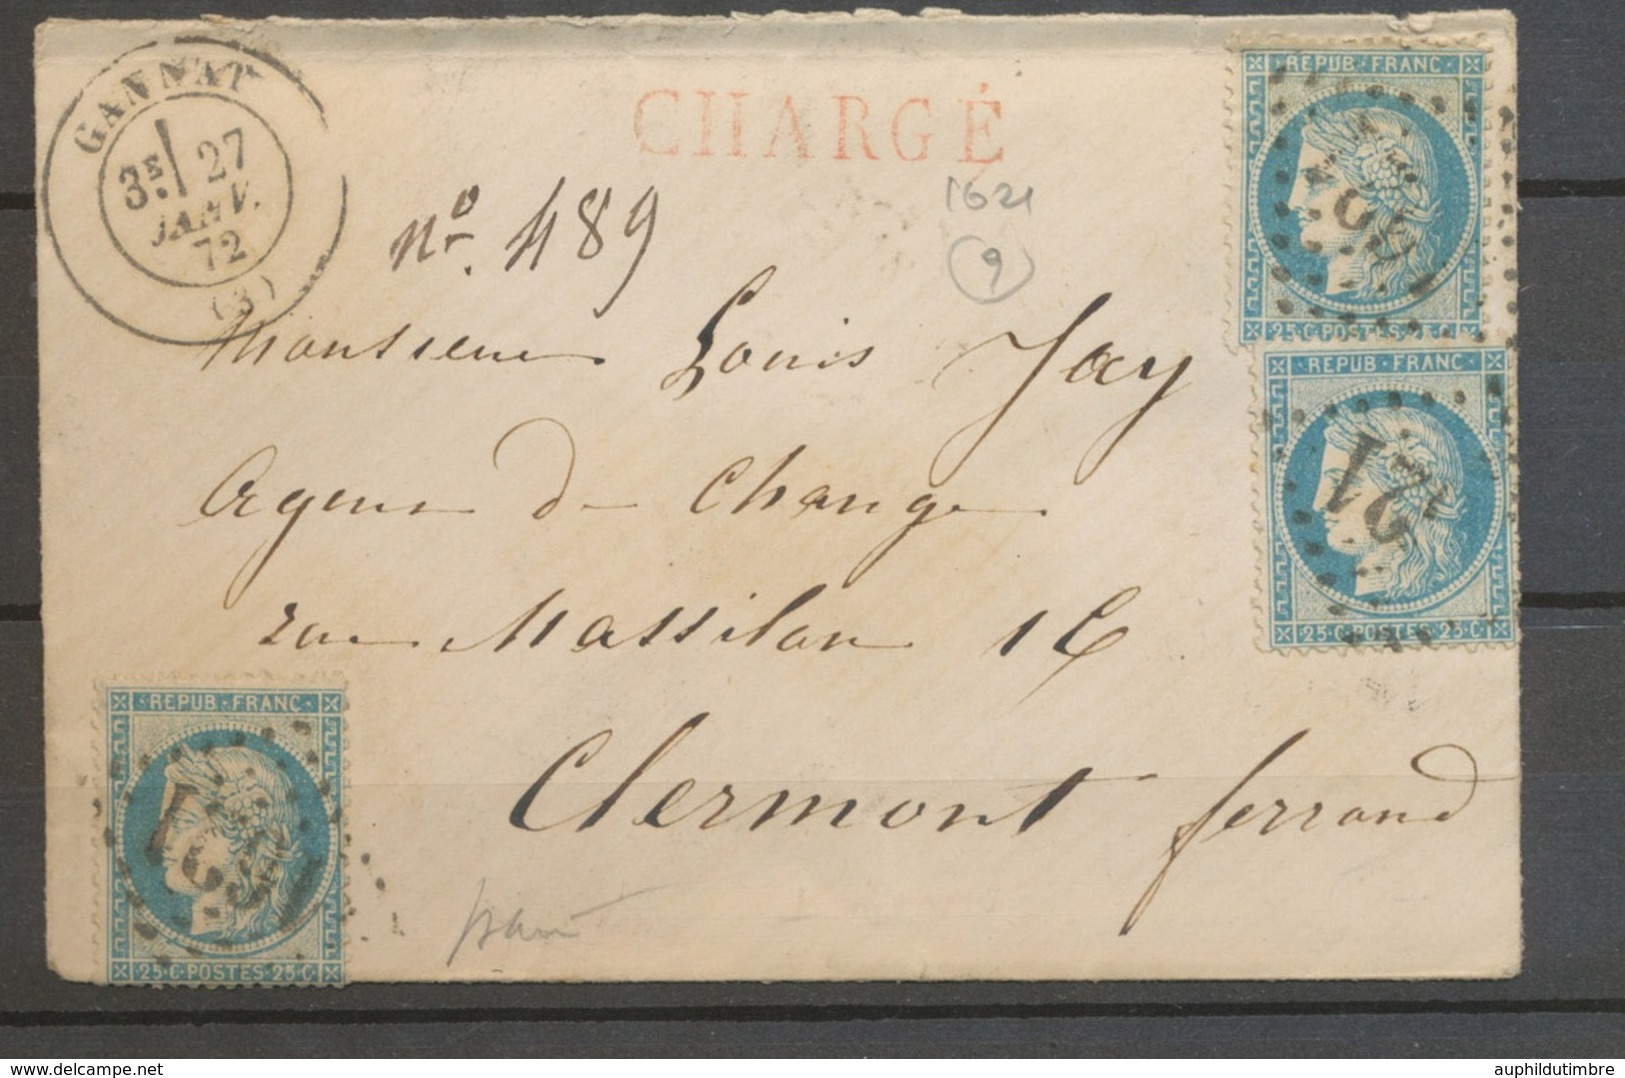 GANNAT
3E 27
JANV.
72
(3)
CHARGÉ
no. 489
1621
9
Monsieur Louis Jay
Agent de Change
rue Massillon 16
Clermont ferrand
REPUB·FRANC
25·C·POSTES·25·C
REPUB·FRANC
25·C·POSTES·25·C
REPUB·FRANC
25·C·POSTES·25·C
auphildutimbre - https://www.delcampe.net